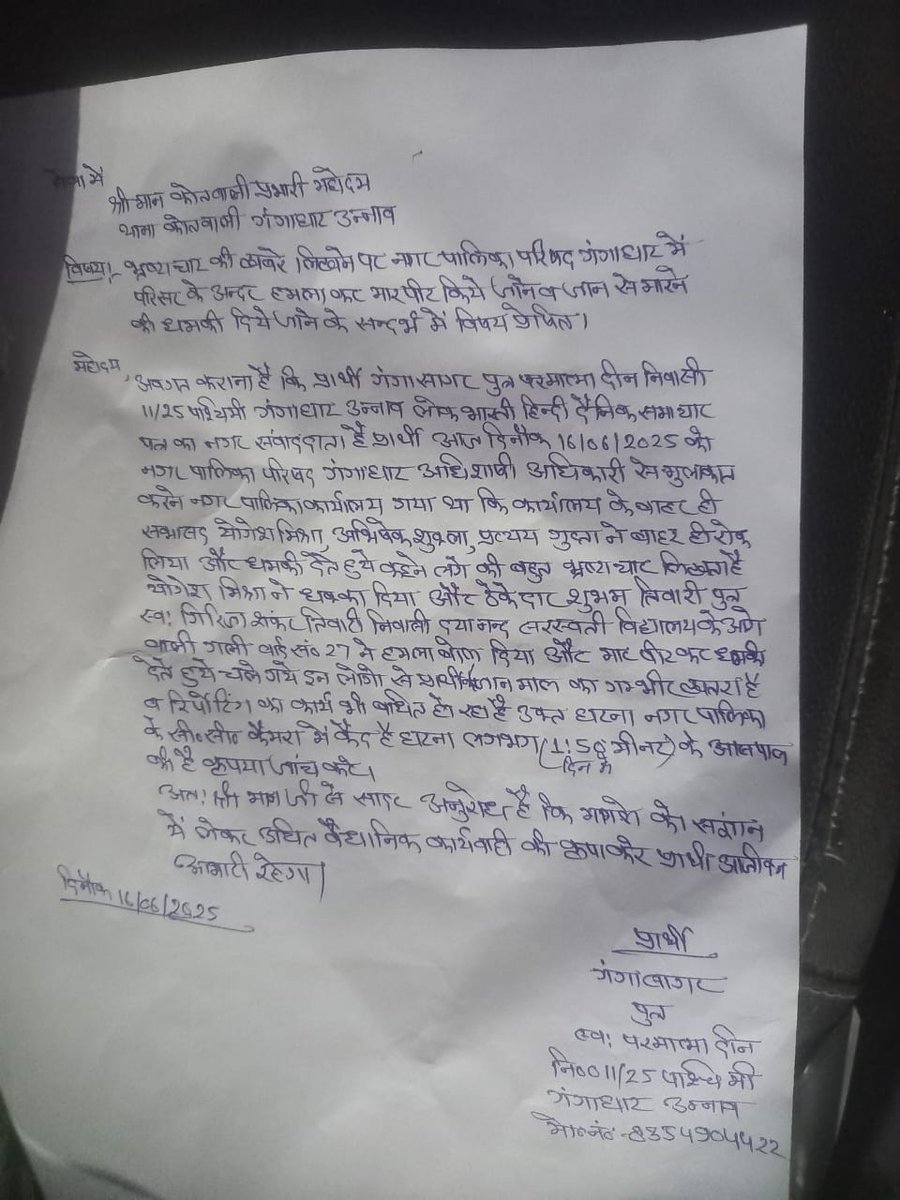 सेवा में
श्री मान कोतवाली प्रभारी महोदय
थाना कोतवाली गंगाघाट उन्नाव
विषय:- भ्रष्टाचार की खबरे लिखने पर नगर पालिका परिषद गंगाघाट में
परिसर के अन्दर हमला कर मारपीट किये जाने व जान से मारने
की धमकी दिये जाने के सन्दर्भ में विषय प्रेषित।
महोदय,
अवगत कराना है कि प्रार्थी गंगा सागर पुत्र परमात्मा दीन निवासी
11/25 पश्चिमी गंगाघाट उन्नाव लोक भारती हिन्दी दैनिक समाचार
पत्र का नगर संवाददाता है प्रार्थी आज दिनाँक 16/06/2025 को
नगर पालिका परिषद गंगाघाट अधिशाषी अधिकारी से मुलाकात
करने नगर पालिका कार्यालय गया था कि कार्यालय के बाहर ही
सभासद योगेश मिश्रा, अभिषेक शुक्ला, प्रत्यय गुप्ता ने बाहर ही रोक
लिया और धमकी देते हुये कहने लगे की बहुत भ्रष्टाचार लिखता है
योगेश मिश्रा ने धक्का दिया और ठेकेदार शुभम तिवारी पुत्र
स्व: गिरिजा शंकर तिवारी निवासी दयानन्द सरस्वती विद्यालय के आगे
वाली गली वार्ड सं० 27 ने हमला बोल दिया और मार पीट कर धमकी
देते हुये चले गये इन लोगो से प्रार्थी को जान माल का गम्भीर खतरा है
व रिपोर्टिंग का कार्य भी बाधित हो रहा है उक्त घटना नगर पालिका
के सी०सी० कैमरा में कैद है घटना लगभग (1:58 मीनट) के आसपास
दिन में
की है कृपया जांच करे।
अत: श्री मान जी से सादर अनुरोध है कि मामले को संज्ञान
में लेकर उचित वैधानिक कार्यवाही की कृपा करे प्रार्थी आजीवन
आभारी रहेगा।
दिनाँक 16/06/2025
प्रार्थी
गंगासागर
पुत्र
स्व: परमात्मा दीन
नि०० 11/25 पश्चिमी
गंगाघाट उन्नाव
मो०नं०-8354904422